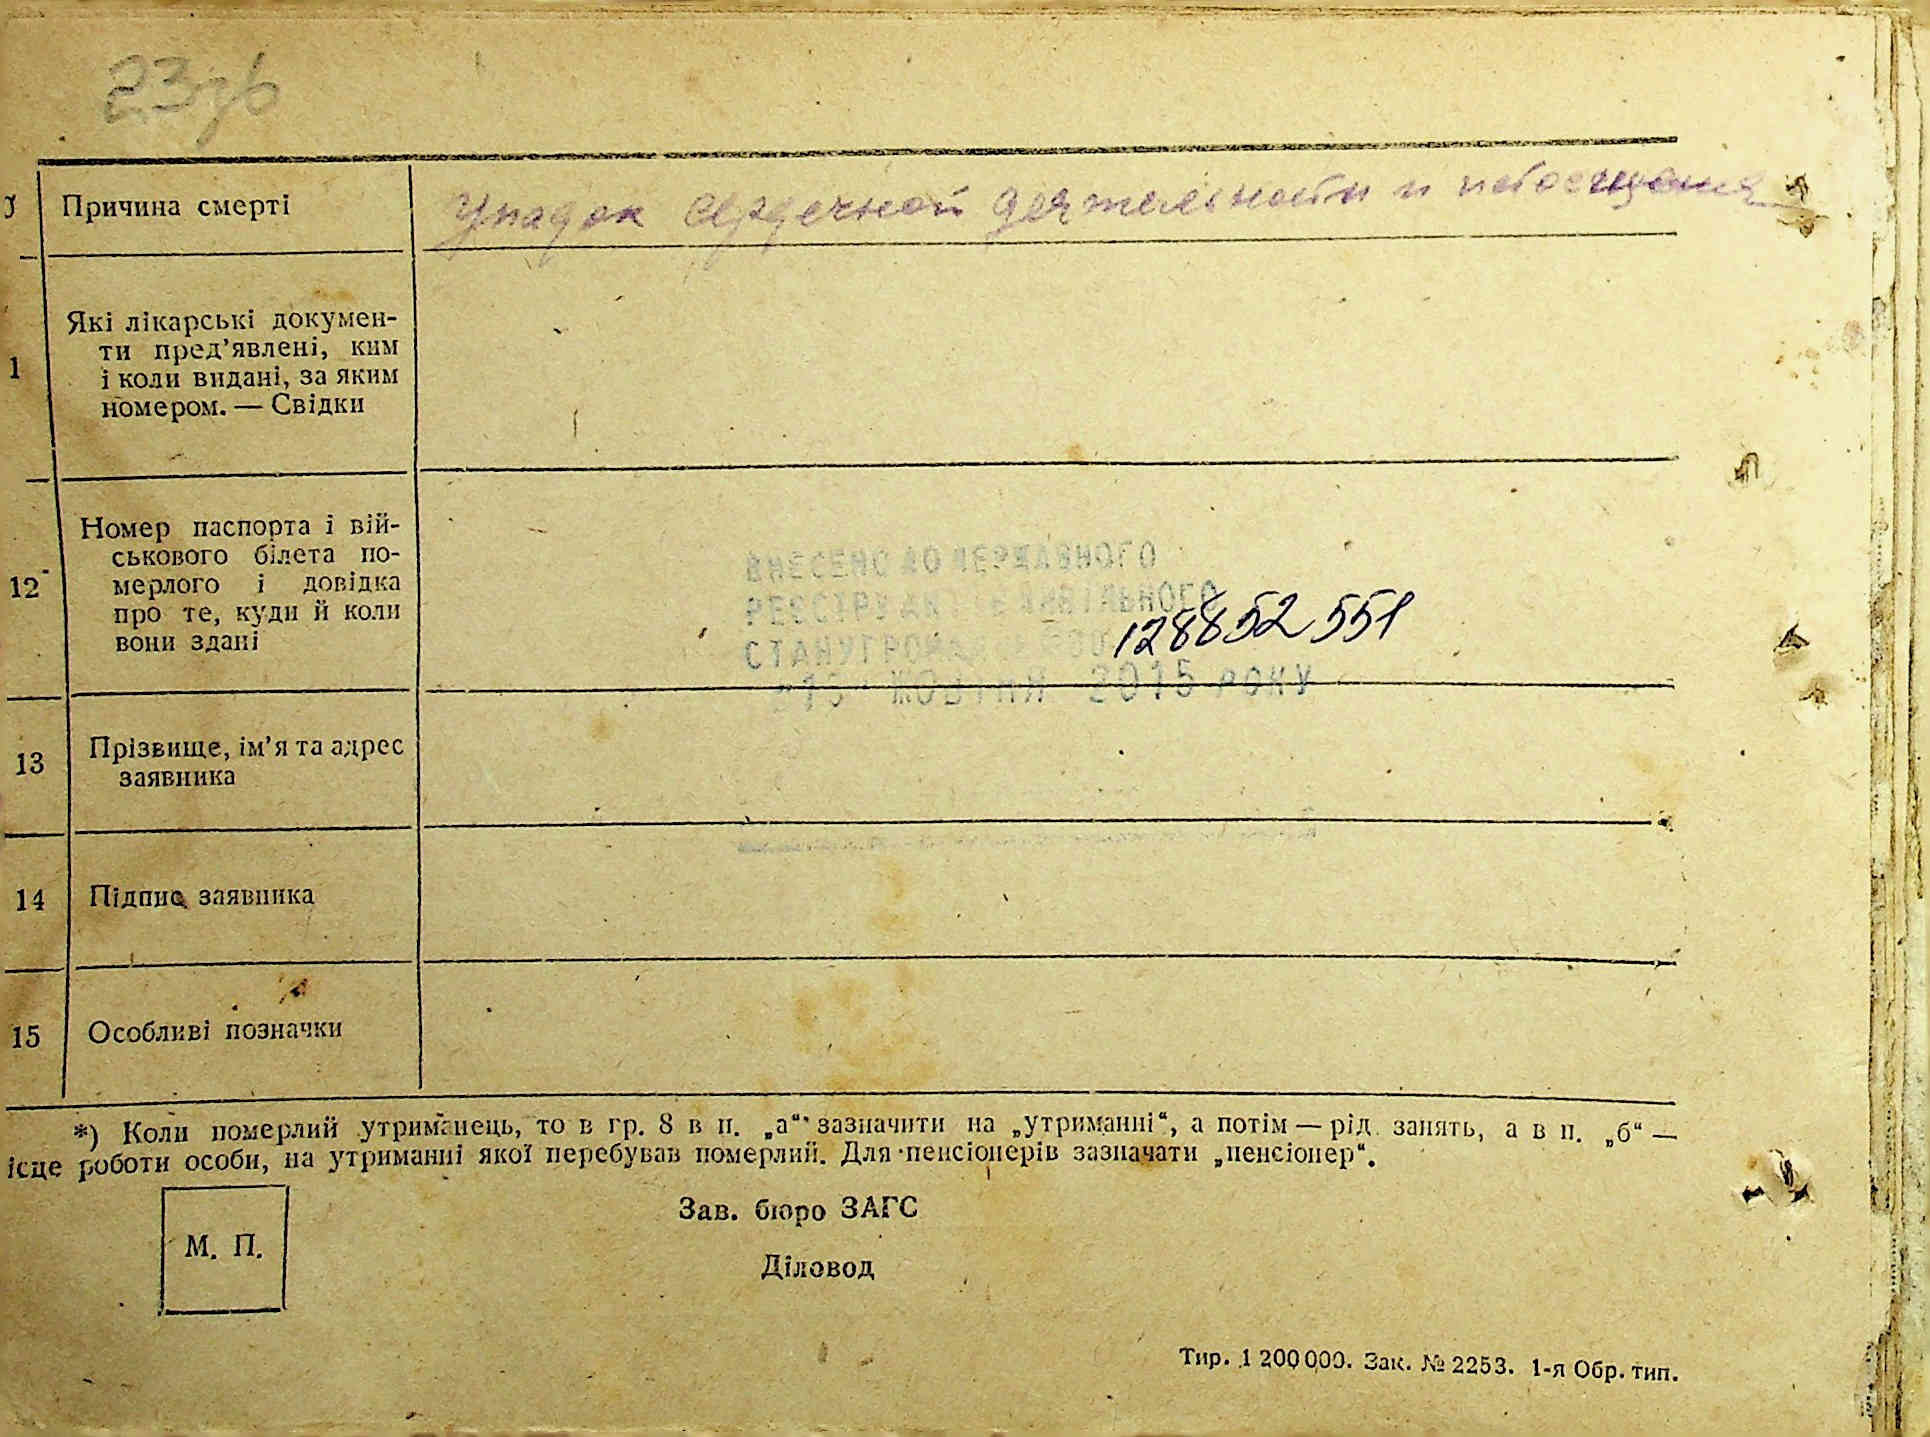 23зв
Причина смерті
Упадок сердечной деятельности и истощение
1
Які лікарські докумен-
ти пред’явлені, ким
і коли видані, за яким
номером. — Свідки
12
Номер паспорта і вій-
ськового білета по-
мерлого і довідка
про те, куди й коли
вони здані
ВНЕСЕНО ДО ДЕРЖАВНОГО
РЕЄСТРУ АКТІВ ЦИВІЛЬНОГО
СТАНУ ГРОМАДЯН
128852551
ЖОВТНЯ 2015 РОКУ
13
Прізвище, ім’я та адрес
заявника
14
Підпис заявника
15
Особливі позначки
*) Коли померлий утриманець, то в гр. 8 в п. „а“ зазначити на „утриманні“, а потім — рід занять, а в п. „б“ —
ісце роботи особи, на утриманні якої перебував померлий. Для пенсіонерів зазначати „пенсіонер“.
М. П.
Зав. бюро ЗАГС
Діловод
Тир. 1 200 000. Зак. № 2253. 1-я Обр. тип.